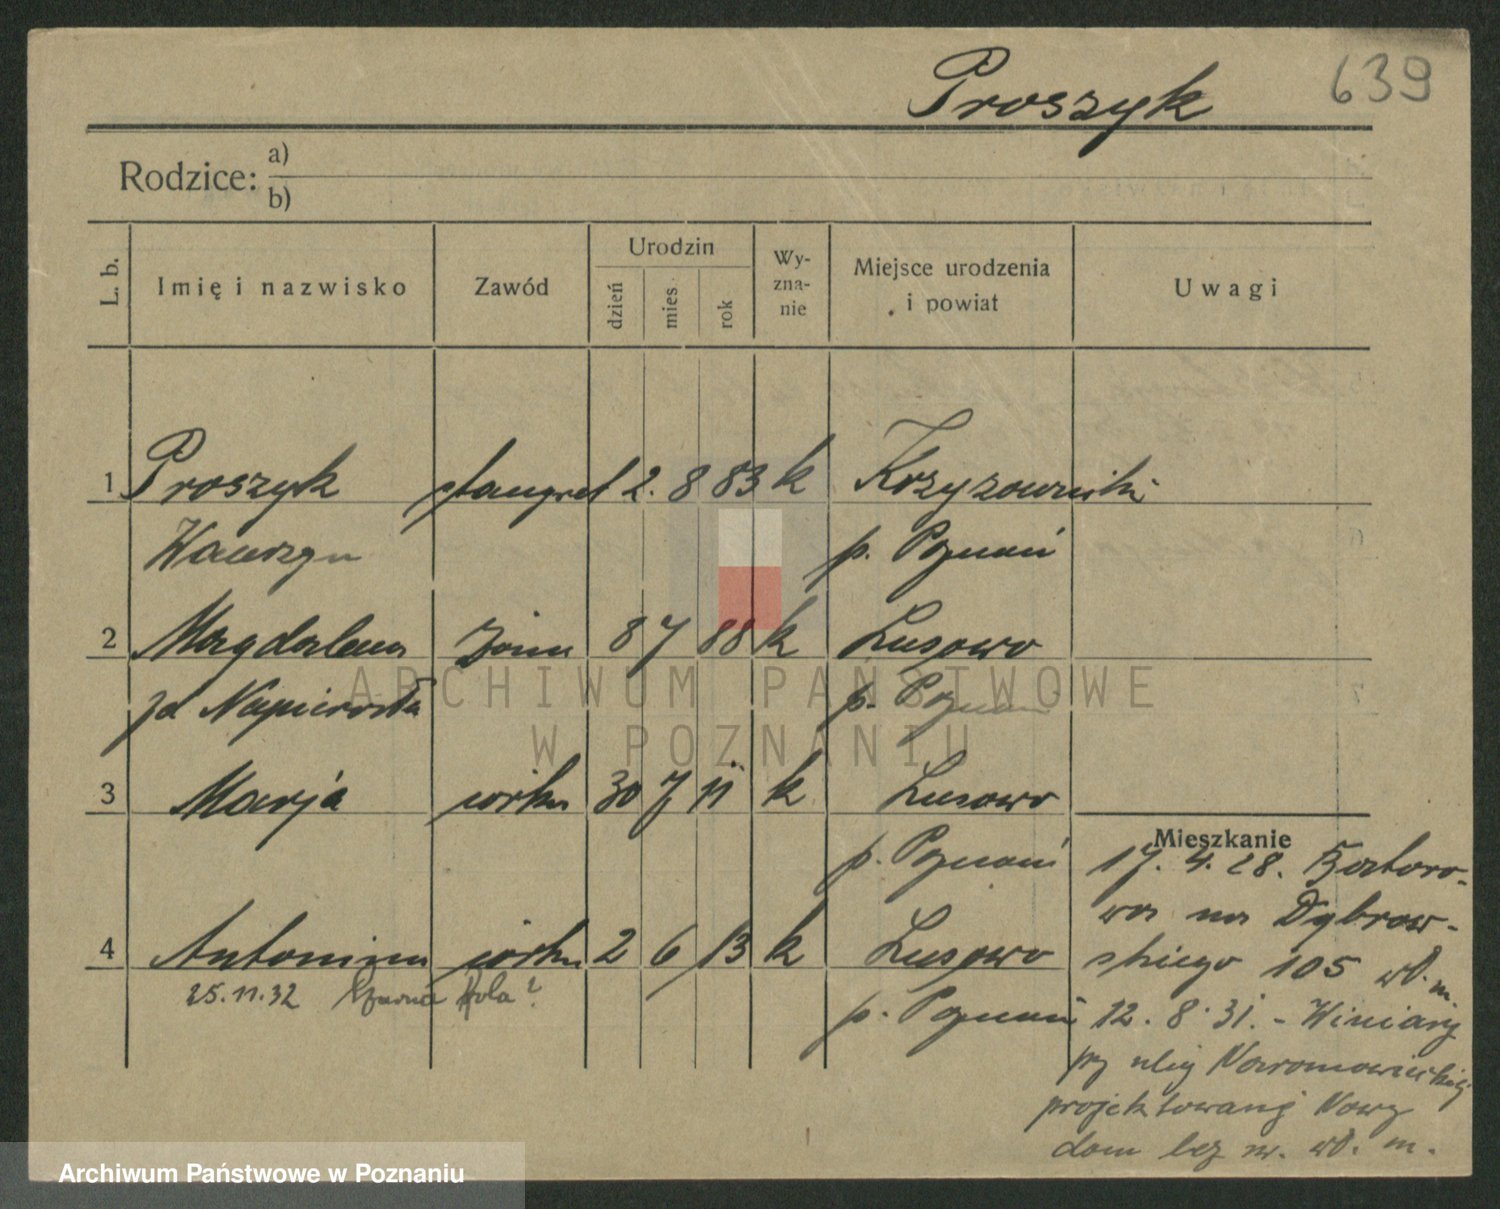 639
Proszyk
Rodzice: a)
b)
L. b.
Imię i nazwisko
Zawód
Urodzin
dzień
mies.
rok
Wy-
zna-
nie
Miejsce urodzenia
i powiat
Uwagi
1 Proszyk stangret 2. 8 83 k Krzyżowniki
Wawrzyn p. Poznań
2 Magdalena żona 8 7 88 k Lusowo
zd Napierała p. Poznań
3 Marja córka 30 7 11 k Lusowo
p. Poznań
4 Antonina córka 2 6 13 k Lusowo
25.11.32 Czarna Rola 2. p. Poznań
Mieszkanie
17. 4. 28. Batoro-
wa na Dąbrow-
skiego 105 wł. m.
12. 8. 31. - Winiary
przy ulicy
projektowanej Nowy
dom bez nr. wł. m.
ARCHIWUM PAŃSTWOWE
W POZNANIU
Archiwum Państwowe w Poznaniu